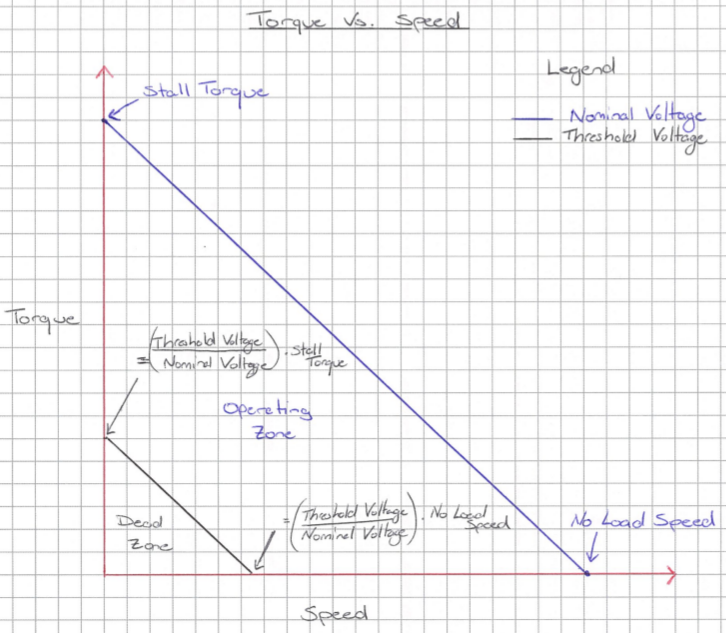 Torque Vs. Speed
Legend
Nominal Voltage
Threshold Voltage
Stall Torque
Torque
= (Threshold Voltage / Nominal Voltage) . Stall
Torque
Operating
Zone
Dead
Zone
= (Threshold Voltage / Nominal Voltage) . No Load
Speed
No Load Speed
Speed